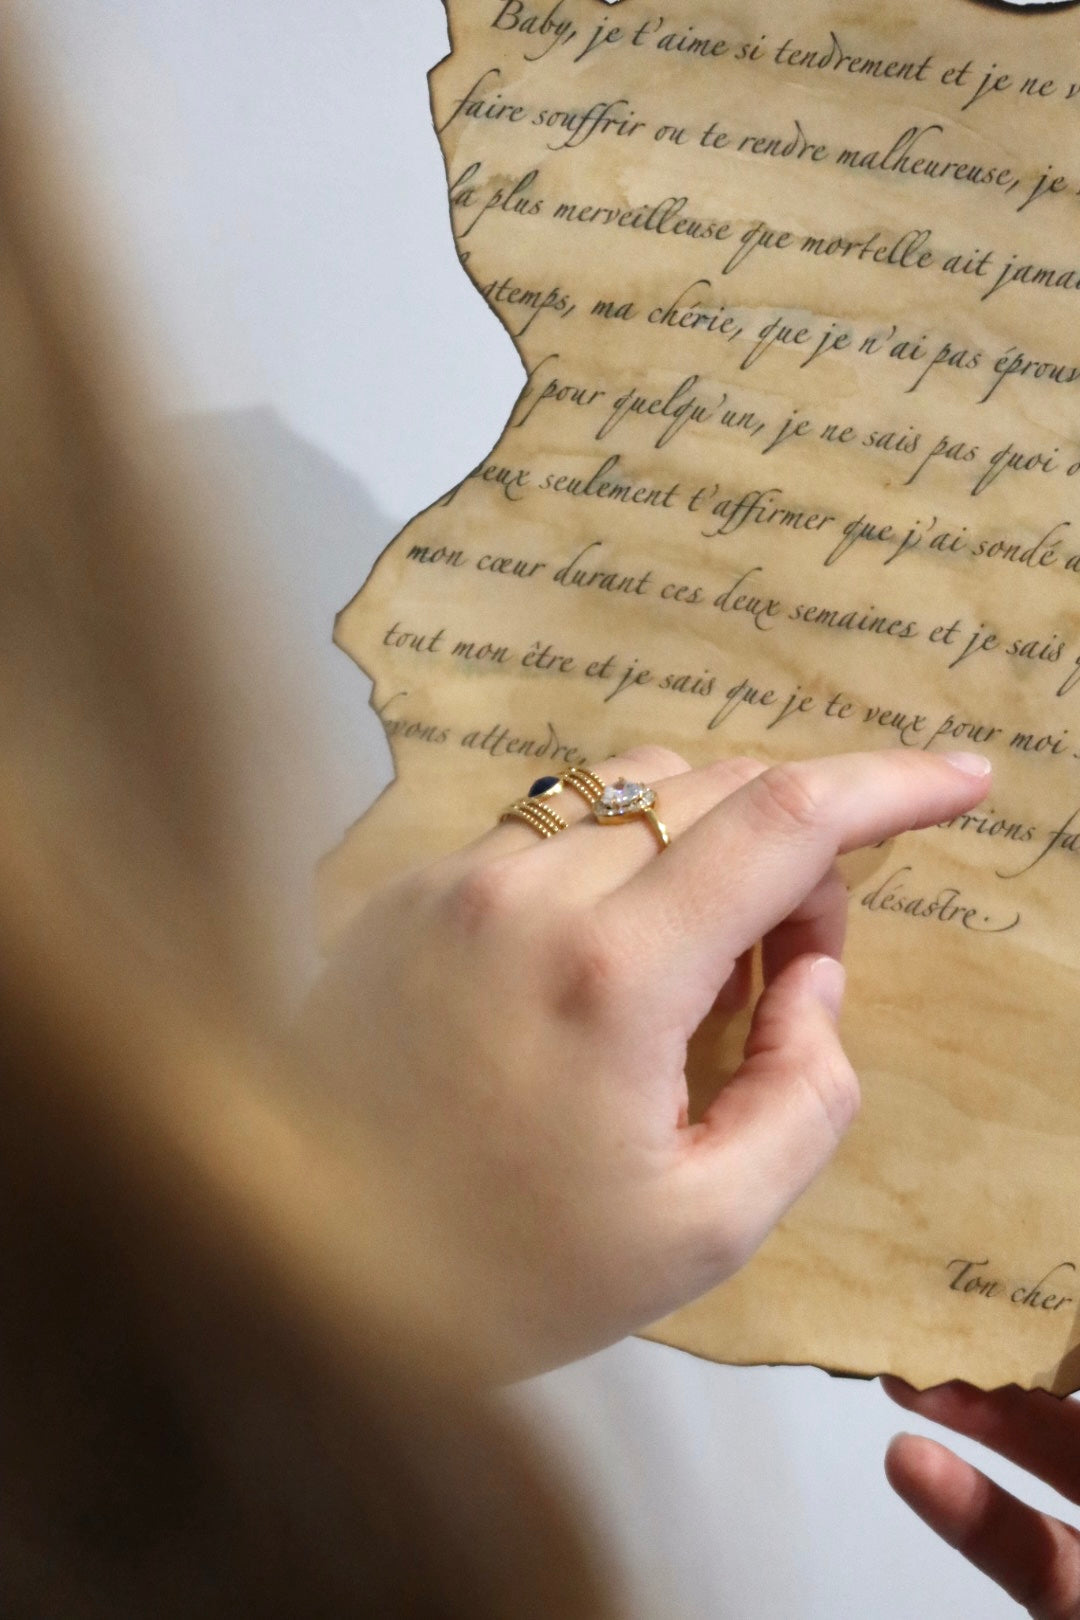 Baby, je t'aime si tendrement et je ne
faire souffrir ou te rendre malheureuse, je
la plus merveilleuse que mortelle ait
temps, ma chérie, que je n'ai pas
pour quelqu'un, je ne sais pas quoi
peux seulement t'affirmer que j'ai sondé
mon cœur durant ces deux semaines et je sais
tout mon être et je sais que je te veux pour moi
attendre,
désastre.
Ton cher